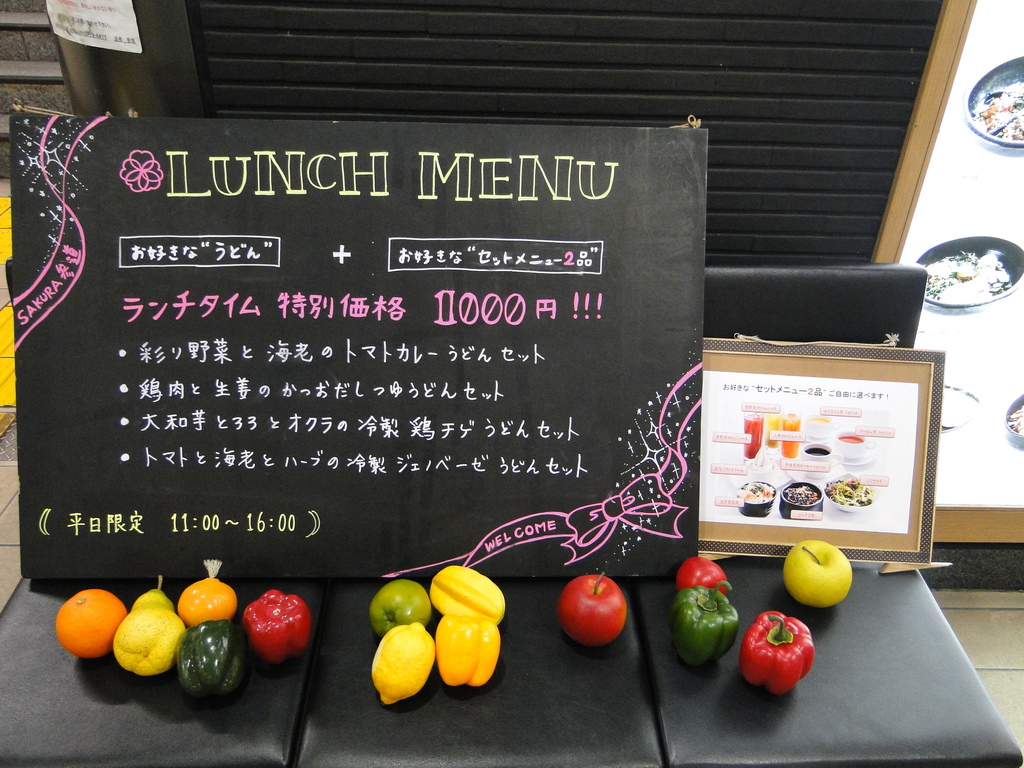 LUNCH MENU
お好きな"うどん" + お好きな"セットメニュー2品"
ランチタイム 特別価格 1000円!!!
• 彩り野菜と海老のトマトカレーうどんセット
• 鶏肉と生姜のかつおだしつゆうどんセット
• 大和芋とろろとオクラの冷製鶏チゲうどんセット
• トマトと海老とハーブの冷製ジェノベーゼうどんセット
《 平日限定 11:00~16:00 》
SAKURA参道
WELCOME
お好きな"セットメニュー2品"ご自由に選べます!